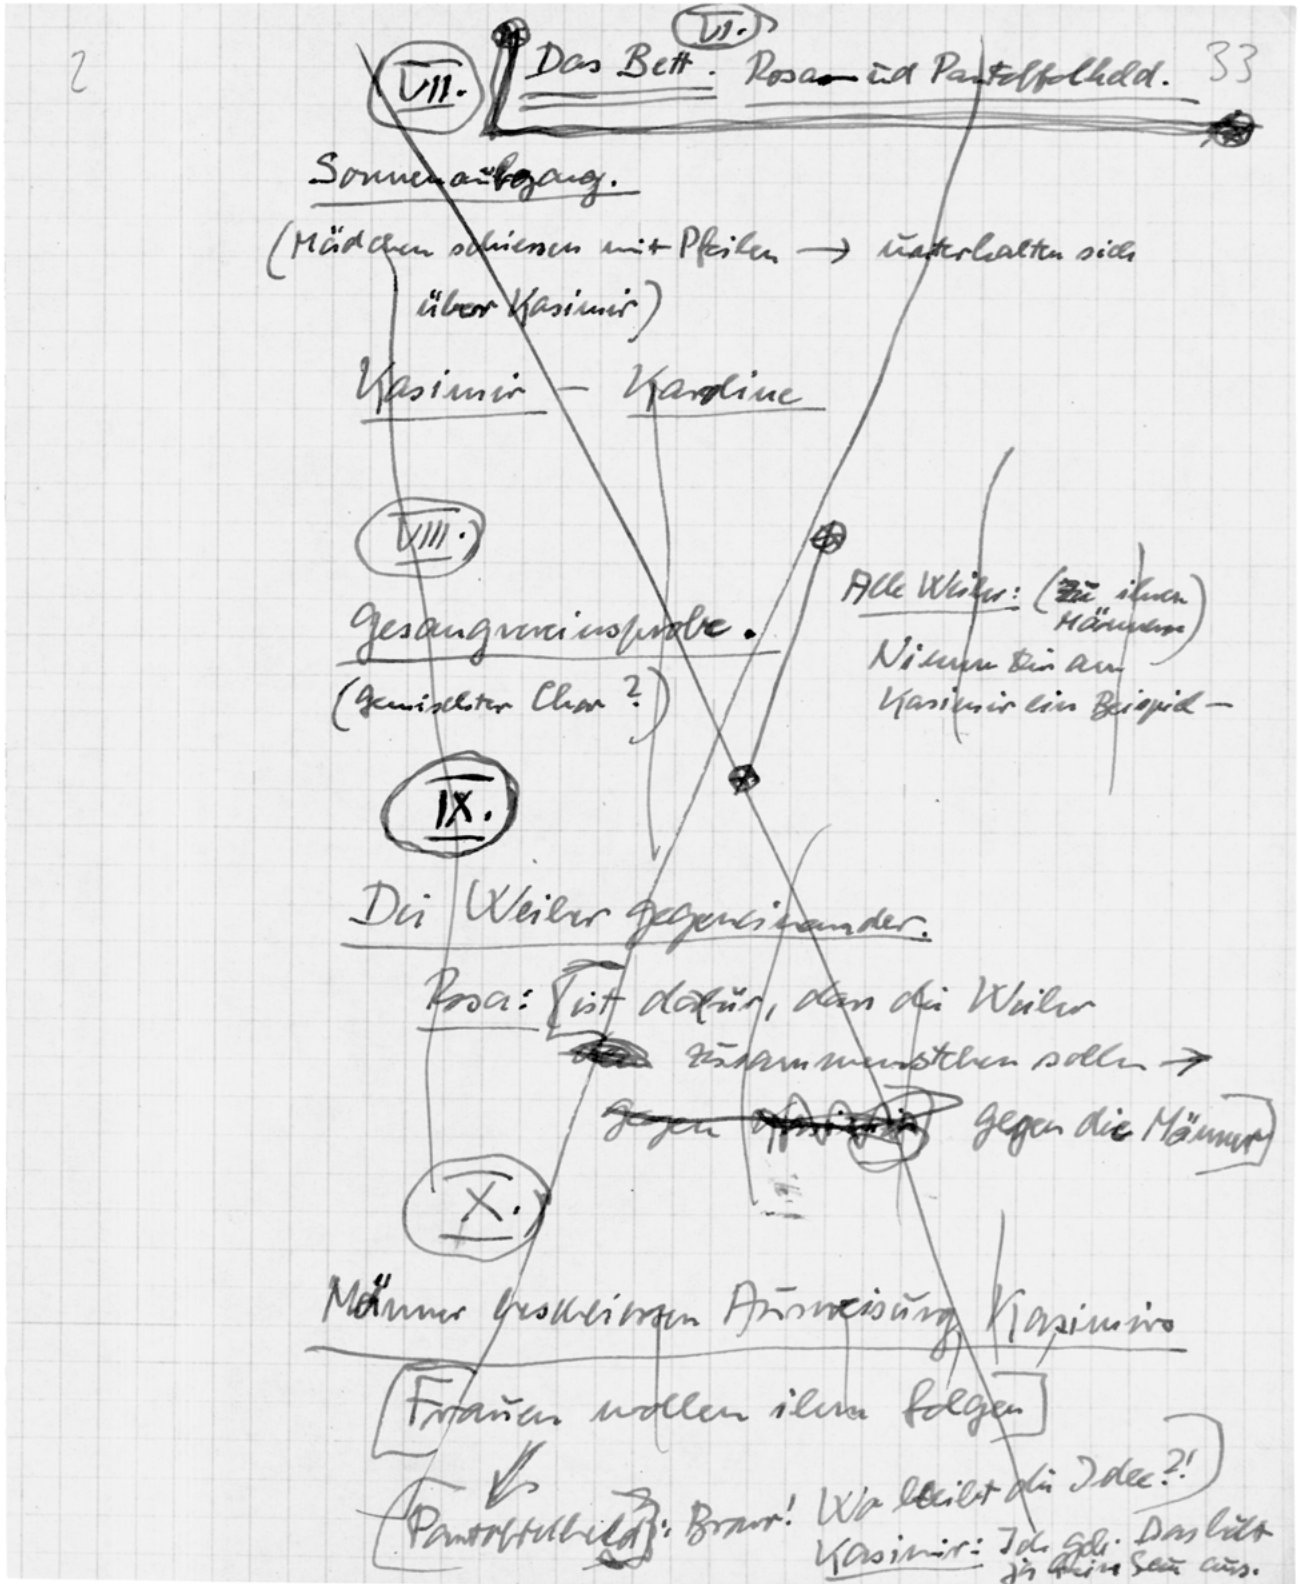 2
VI.
33
VII. Das Bett. Rosa und Pantoffelheld.
Sonnenaufgang.
(Mädchen schiessen mit Pfeilen → unterhalten sich
über Kasimir)
Kasimir – Karoline
VIII.
Gesangvereinsprobe.
(Gemischter Chor?)
Alle Weiber: (zu ihren
Männern)
Nimm Dir an
Kasimir ein Beispiel –
IX.
Die Weiber gegeneinander.
Rosa: [ist dafür, dass die Weiber
zusammenstehen sollen →
gegen Kasimir gegen die Männer]
X.
Männer beschliessen Ausweisung Kasimirs
[Frauen wollen ihm folgen]
(Pantoffelheld): Bravo! Wo bleibt die Idee?!)
Kasimir: Ich geh. Das hält
ja kein Sau aus.